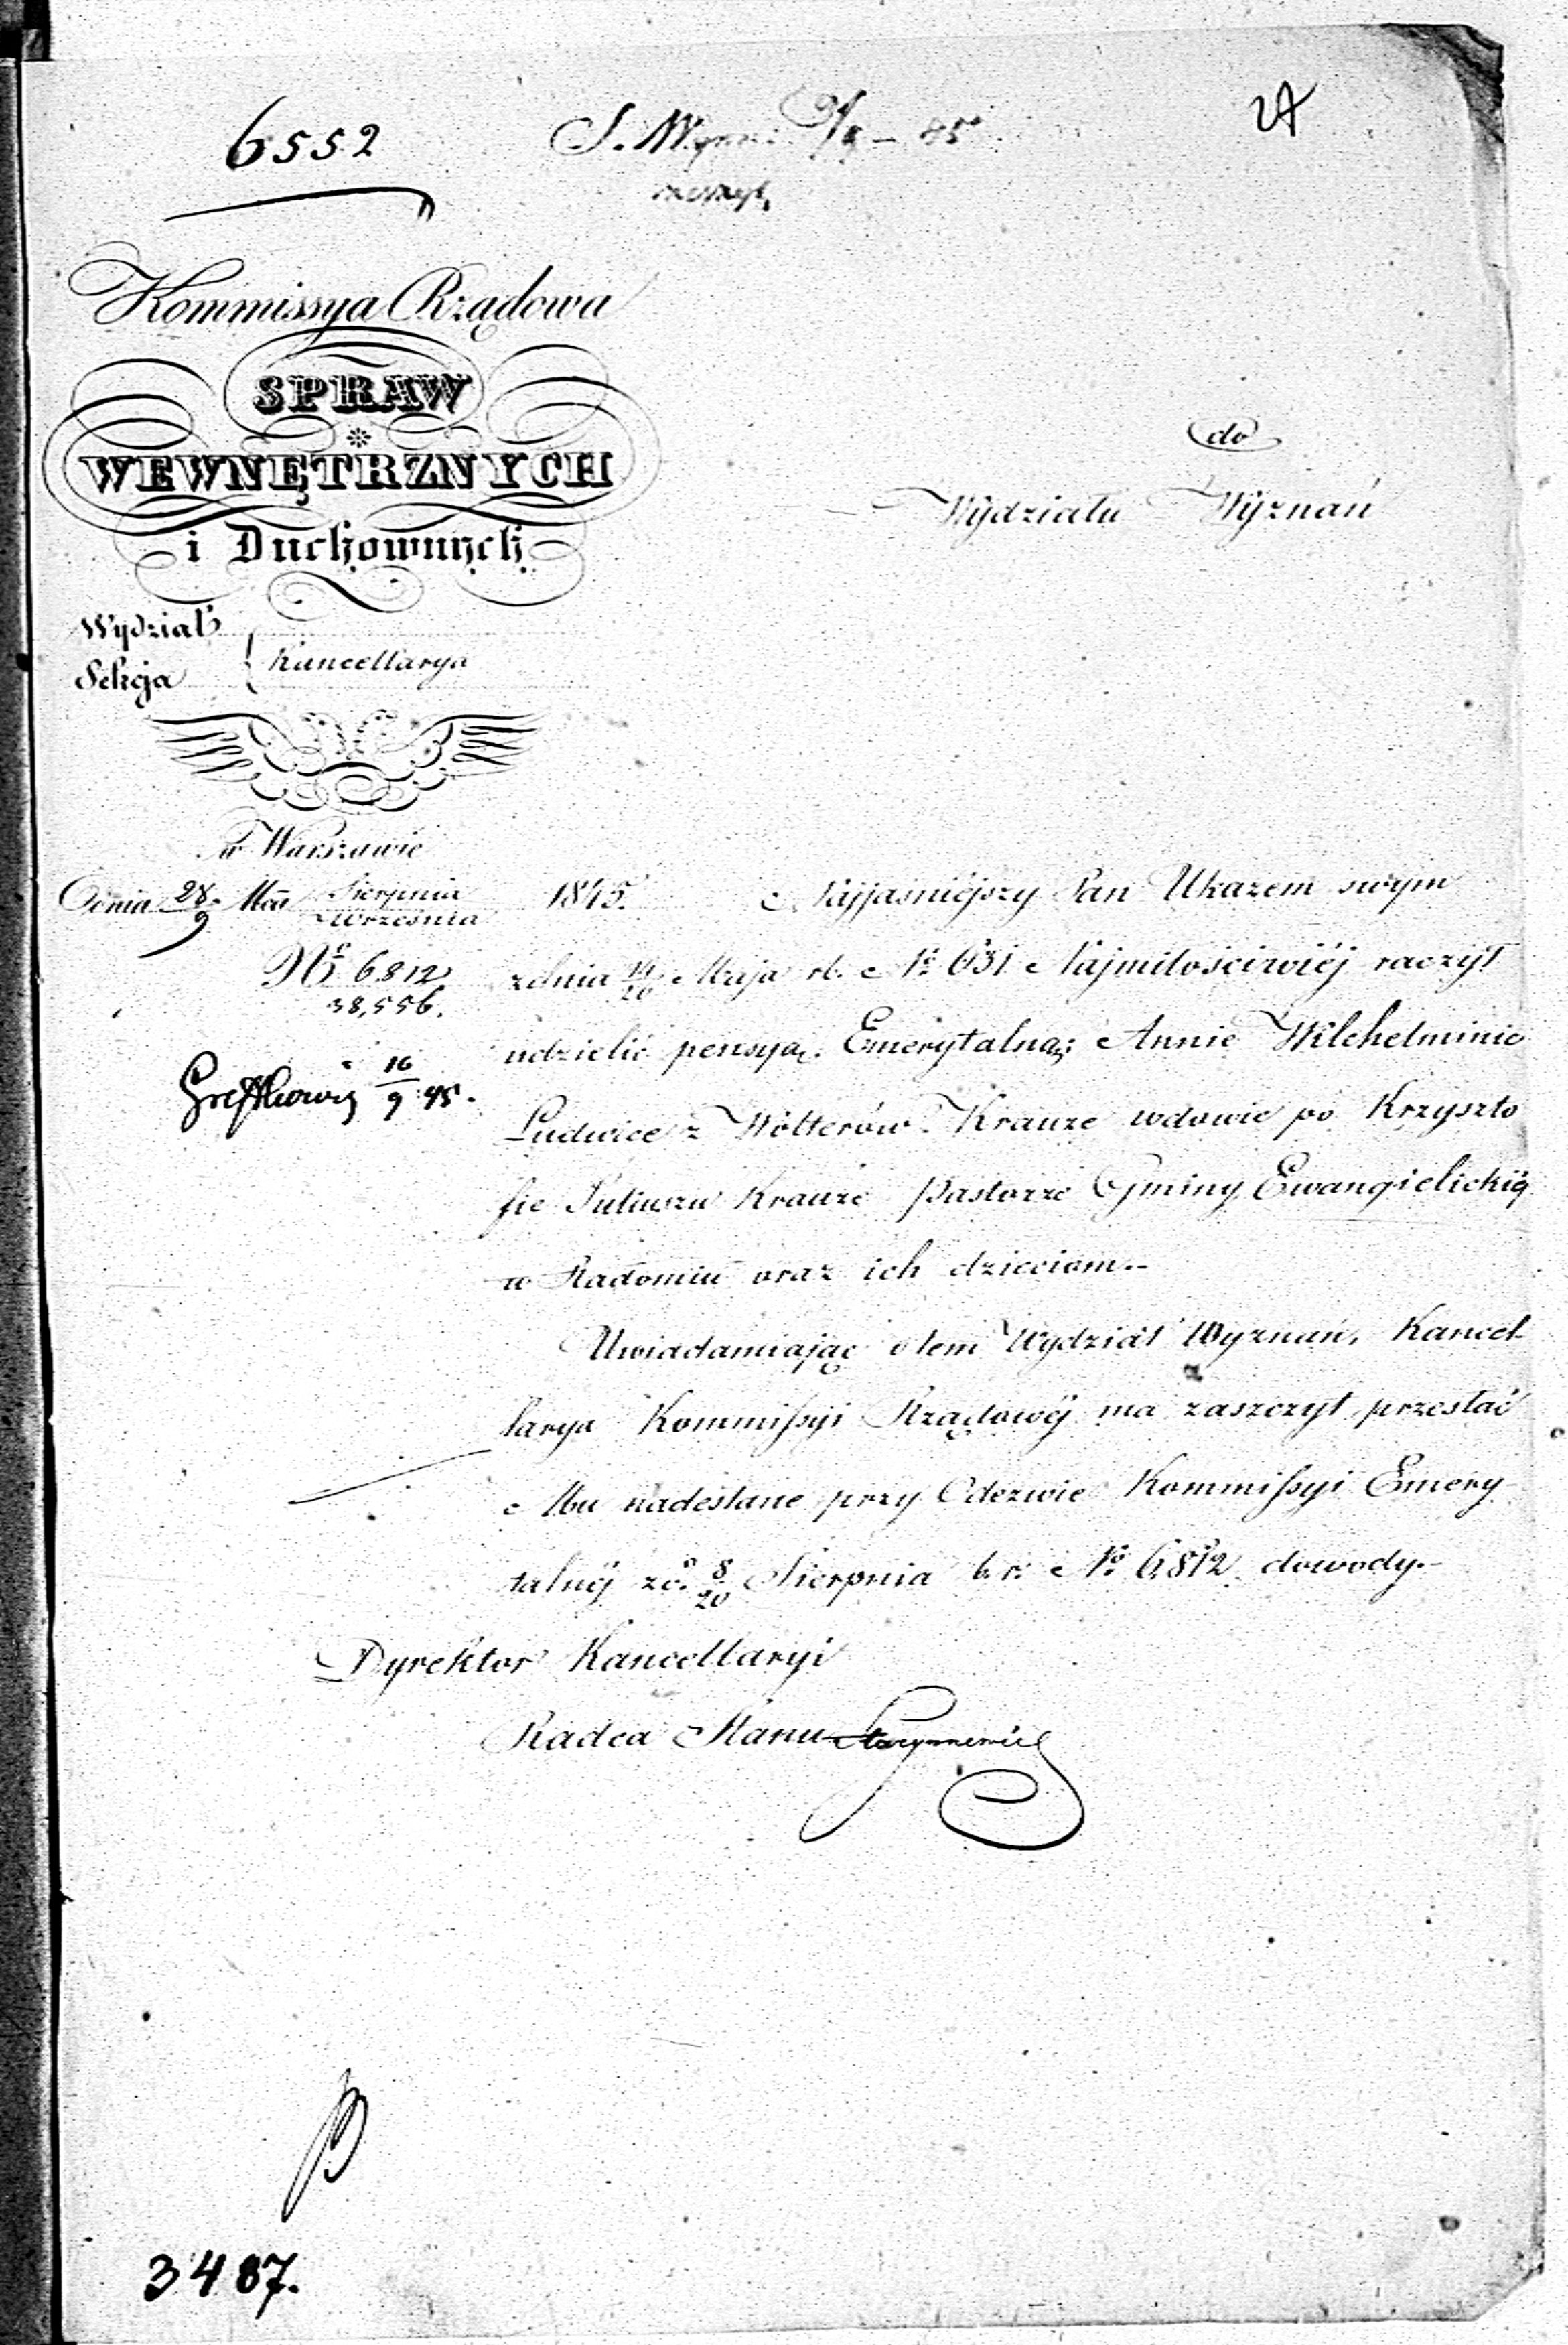 6552
24
Kommissya Rządowa
SPRAW
WEWNĘTRZNYCH
i Duchownych
do
Wydziału Wyznań
Wydział
Sekcja
Kancellarya
w Warszawie
Dnia 28/9 Mca Sierpnia/Września 1845.
Nº 6812
38,556.
16/9 45.
Najjaśniéjszy Pan Ukazem swym
zdnia /20 Maja rb. Nº 631 Najmiłościwiéj raczył
udzielić pensyą Emerytalną; Annie Wilchelminie
Ludwice z Wolterów Krauze wdowie po Krzyszto
fie Juliuszu Krauze Pastorze Gminy Ewangielickiéj
w Radomiu oraz ich dzieciom.-
Uwiadamiając o tem Wydział Wyznań, Kancel-
larya Kommissyi Rządowéj ma zaszczyt przesłać
Mu nadesłane przy Odezwie Kommissyi Emery
talnéj zd. 8/20 Sierpnia b.r. Nº 6812 dowody.-
Dyrektor Kancellaryi
Radca Stanu
3487.